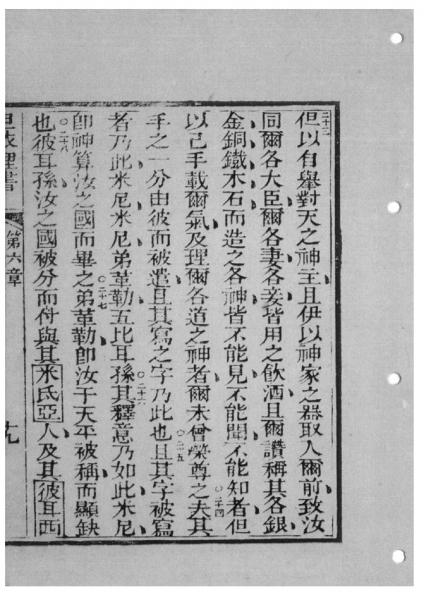 二十三
但以自舉對天之神主且伊以神家之器取入爾前致汝
同爾各大臣爾各妻各妾皆用之飲酒且爾讚稱其各銀
金銅鐵木石而造之各神皆不能見不能聞不能知者但
二十四
以己手載爾氣及理爾各道之神者爾未曾榮尊之夫其
二十五
手之一分由彼而被遣且其寫之字乃此也且其字被寫
二十六
者乃此米尼米尼弟革勒五比耳孫其釋意乃如此米尼
二十七
卽神算汝之國而畢之弟革勒卽汝于天平被稱而顯缺
二十八
也彼耳孫汝之國被分而付與其米氏亞人及其彼耳西
第六章
十九